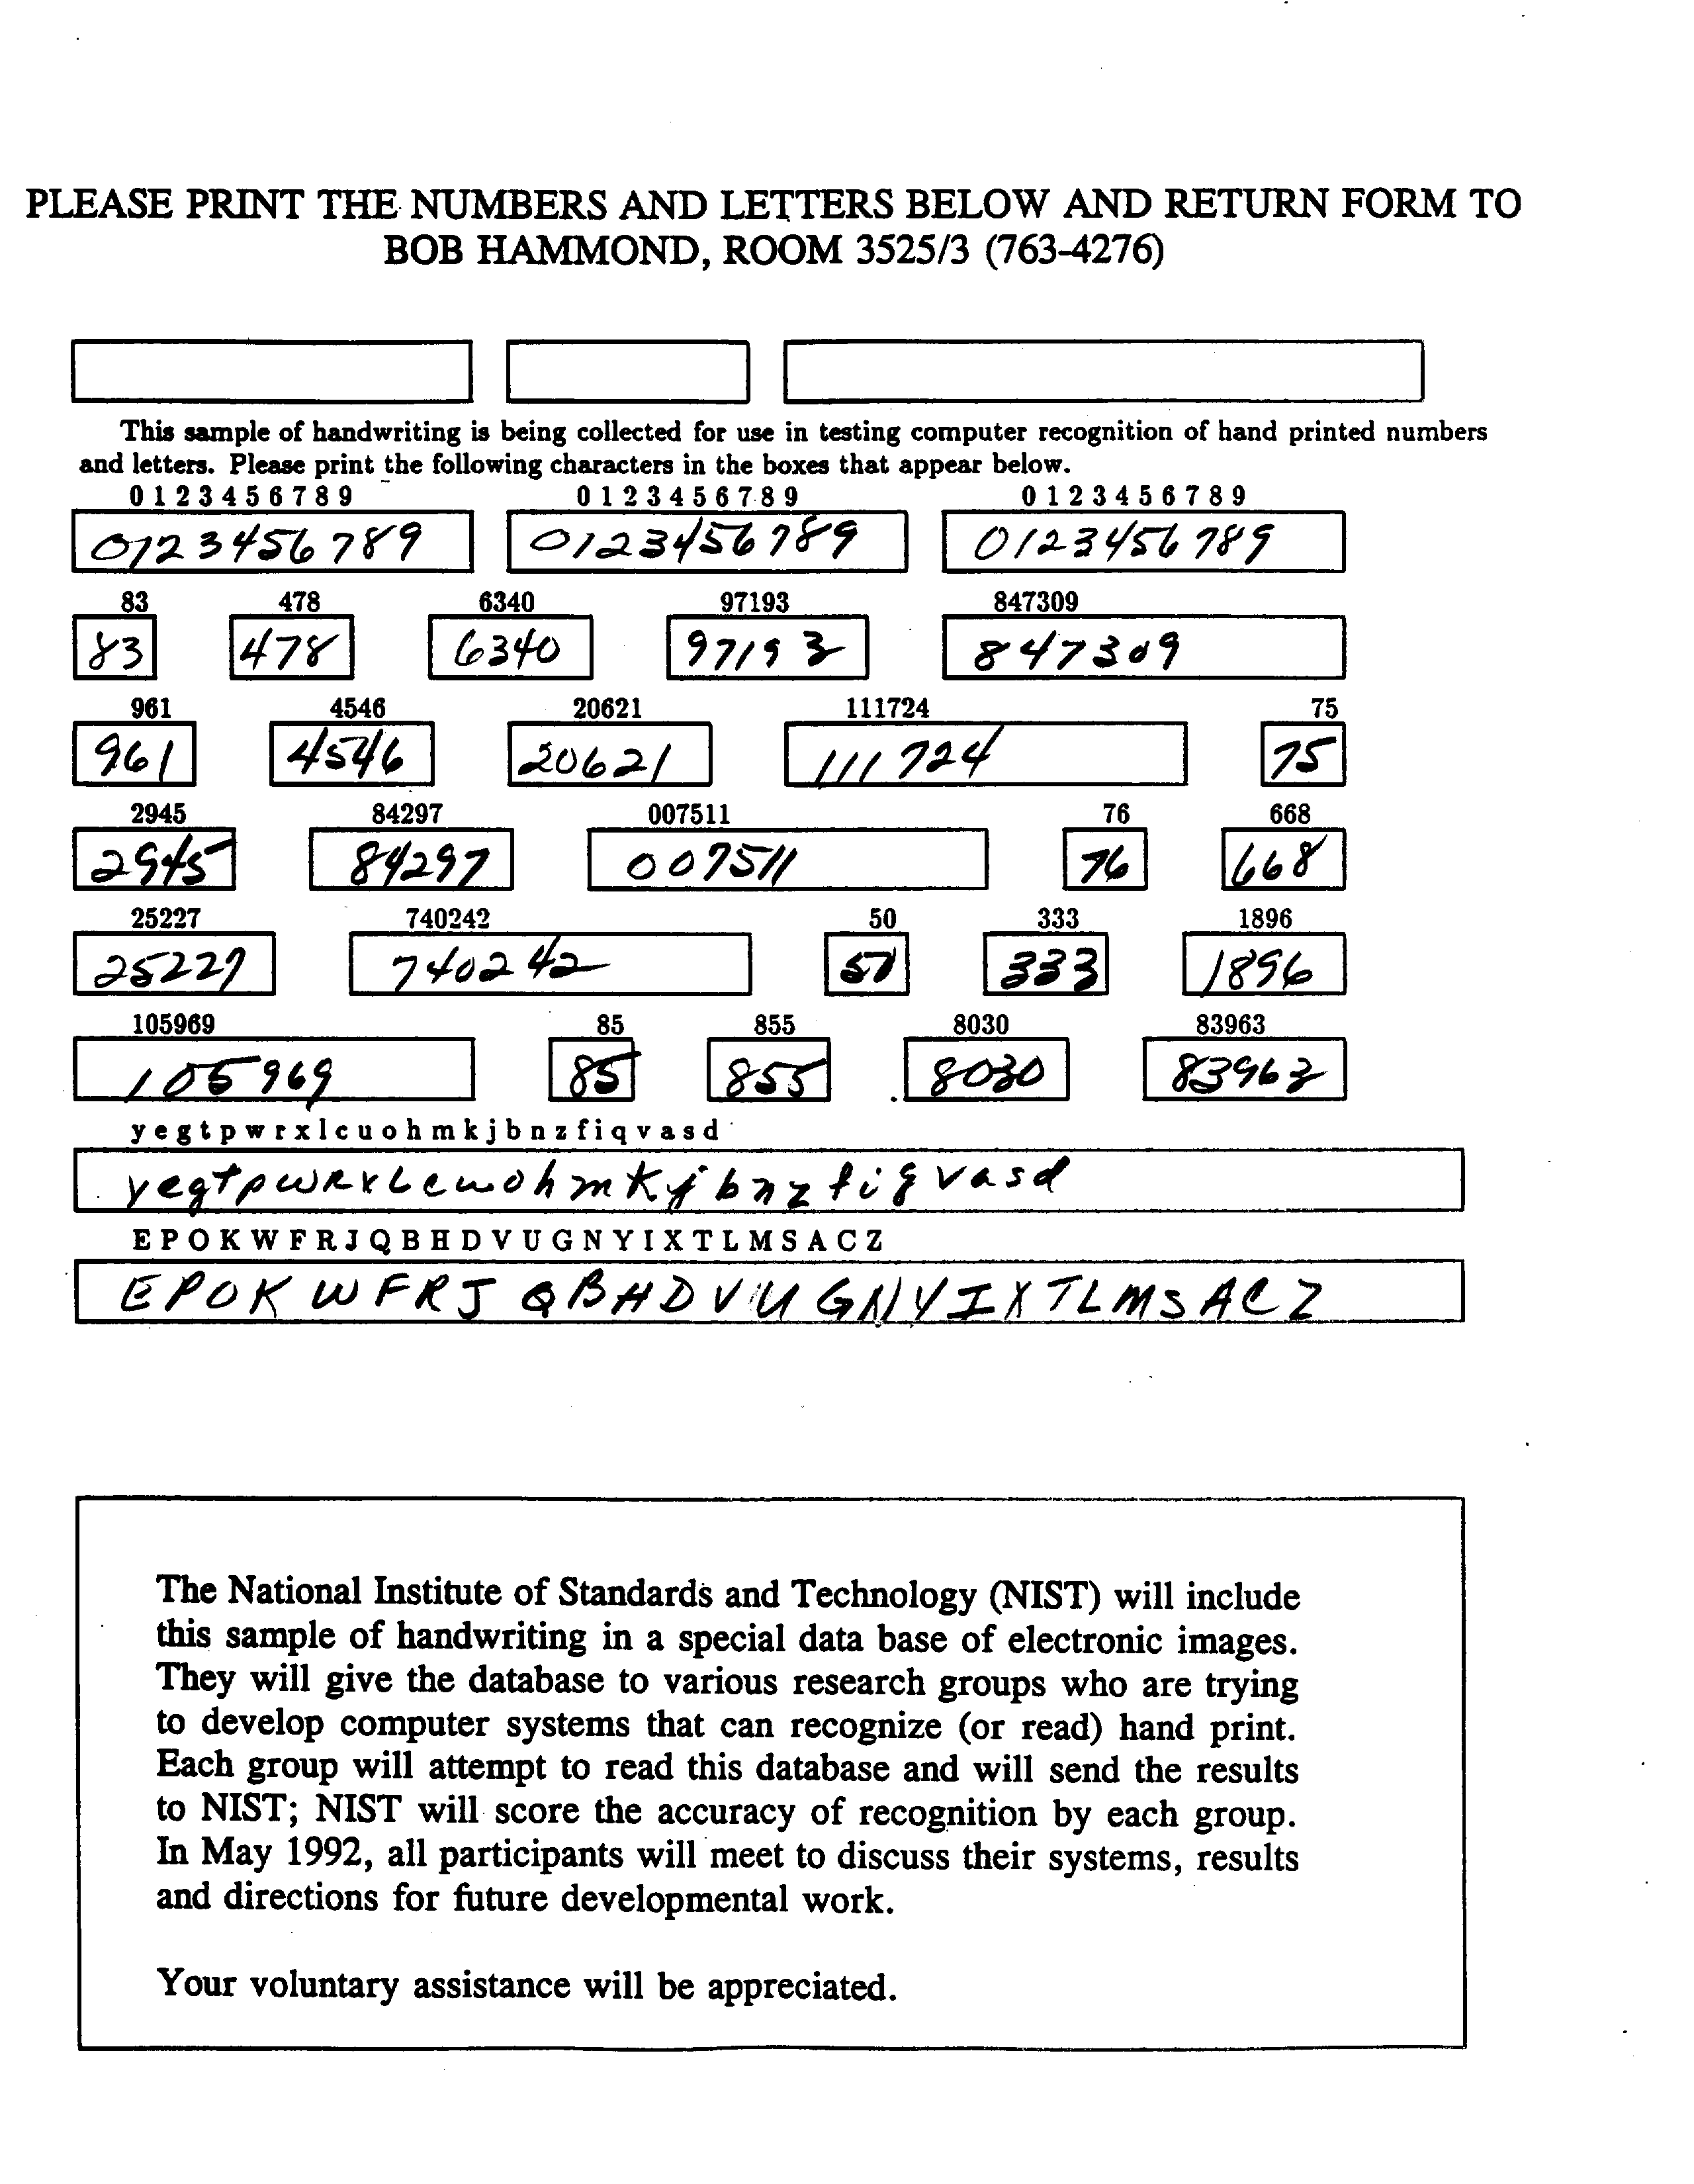 PLEASE PRINT THE NUMBERS AND LETTERS BELOW AND RETURN FORM TO
BOB HAMMOND, ROOM 3525/3 (763-4276)
This sample of handwriting is being collected for use in testing computer recognition of hand printed numbers
and letters. Please print the following characters in the boxes that appear below.
0 1 2 3 4 5 6 7 8 9 0 1 2 3 4 5 6 7 8 9 0 1 2 3 4 5 6 7 8 9
0123456789 0123456789 0123456789
83 478 6340 97193 847309
83 478 6340 97193 847309
961 4546 20621 111724 75
961 4546 20621 111724 75
2945 84297 007511 76 668
2945 84297 007511 76 668
25227 740242 50 333 1896
25227 740242 50 333 1896
105969 85 855 8030 83963
105969 85 855 8030 83963
y e g t p w r x l c u o h m k j b n z f i q v a s d
yegtpwRxLcuohmKjbnzfiqvasd
E P O K W F R J Q B H D V U G N Y I X T L M S A C Z
EPOKWFRJQBHDVUGNYIXTLMSACZ
The National Institute of Standards and Technology (NIST) will include
this sample of handwriting in a special data base of electronic images.
They will give the database to various research groups who are trying
to develop computer systems that can recognize (or read) hand print.
Each group will attempt to read this database and will send the results
to NIST; NIST will score the accuracy of recognition by each group.
In May 1992, all participants will meet to discuss their systems, results
and directions for future developmental work.
Your voluntary assistance will be appreciated.